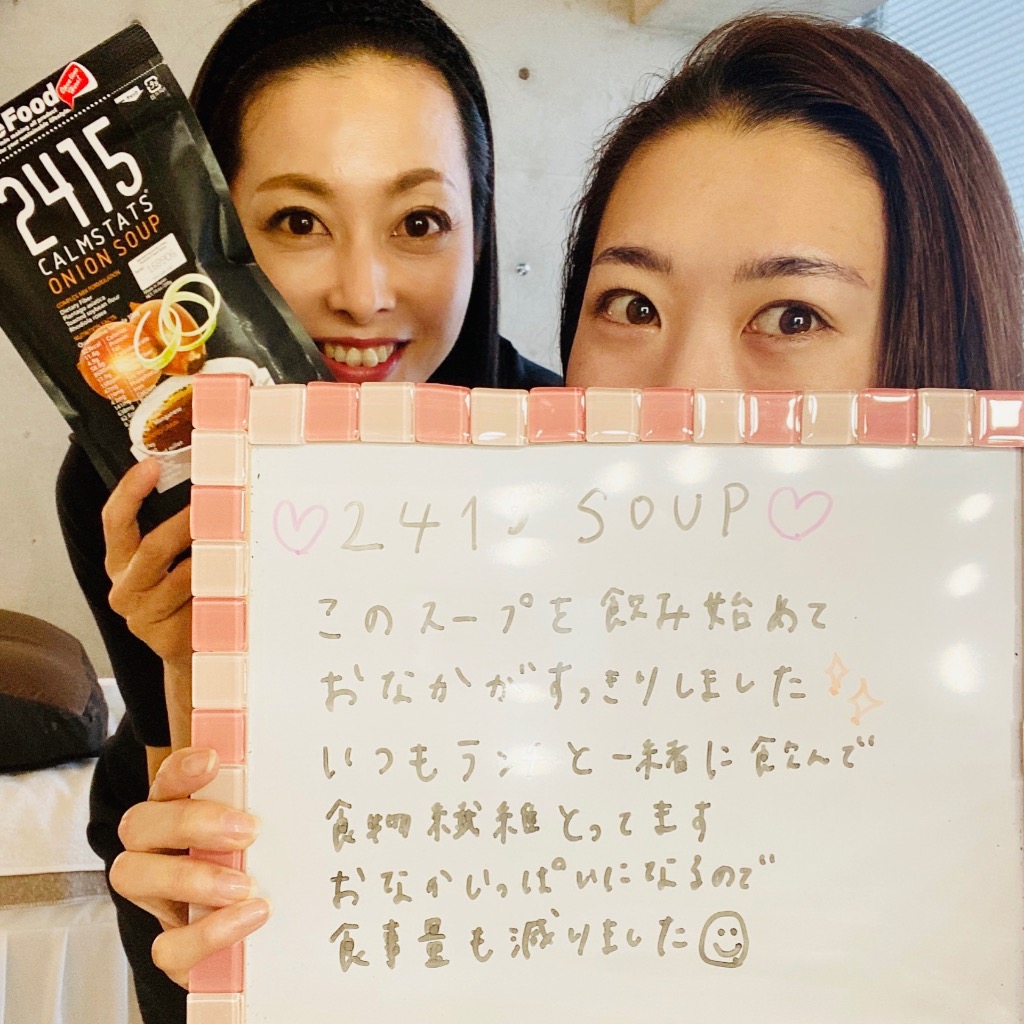 eFood
2415
CALMSTATS
ONION SOUP
COMPLEX MIX FORMULATION
Dietary Fiber
Plantago asiatica
Toasted soybean flour
Rhodiola rosea
241 SOUP
このスープを飲み始めて
おなかがすっきりしました
いつもランチと一緒に飲んで
食物繊維とってます
おなかいっぱいになるので
食事量も減りました